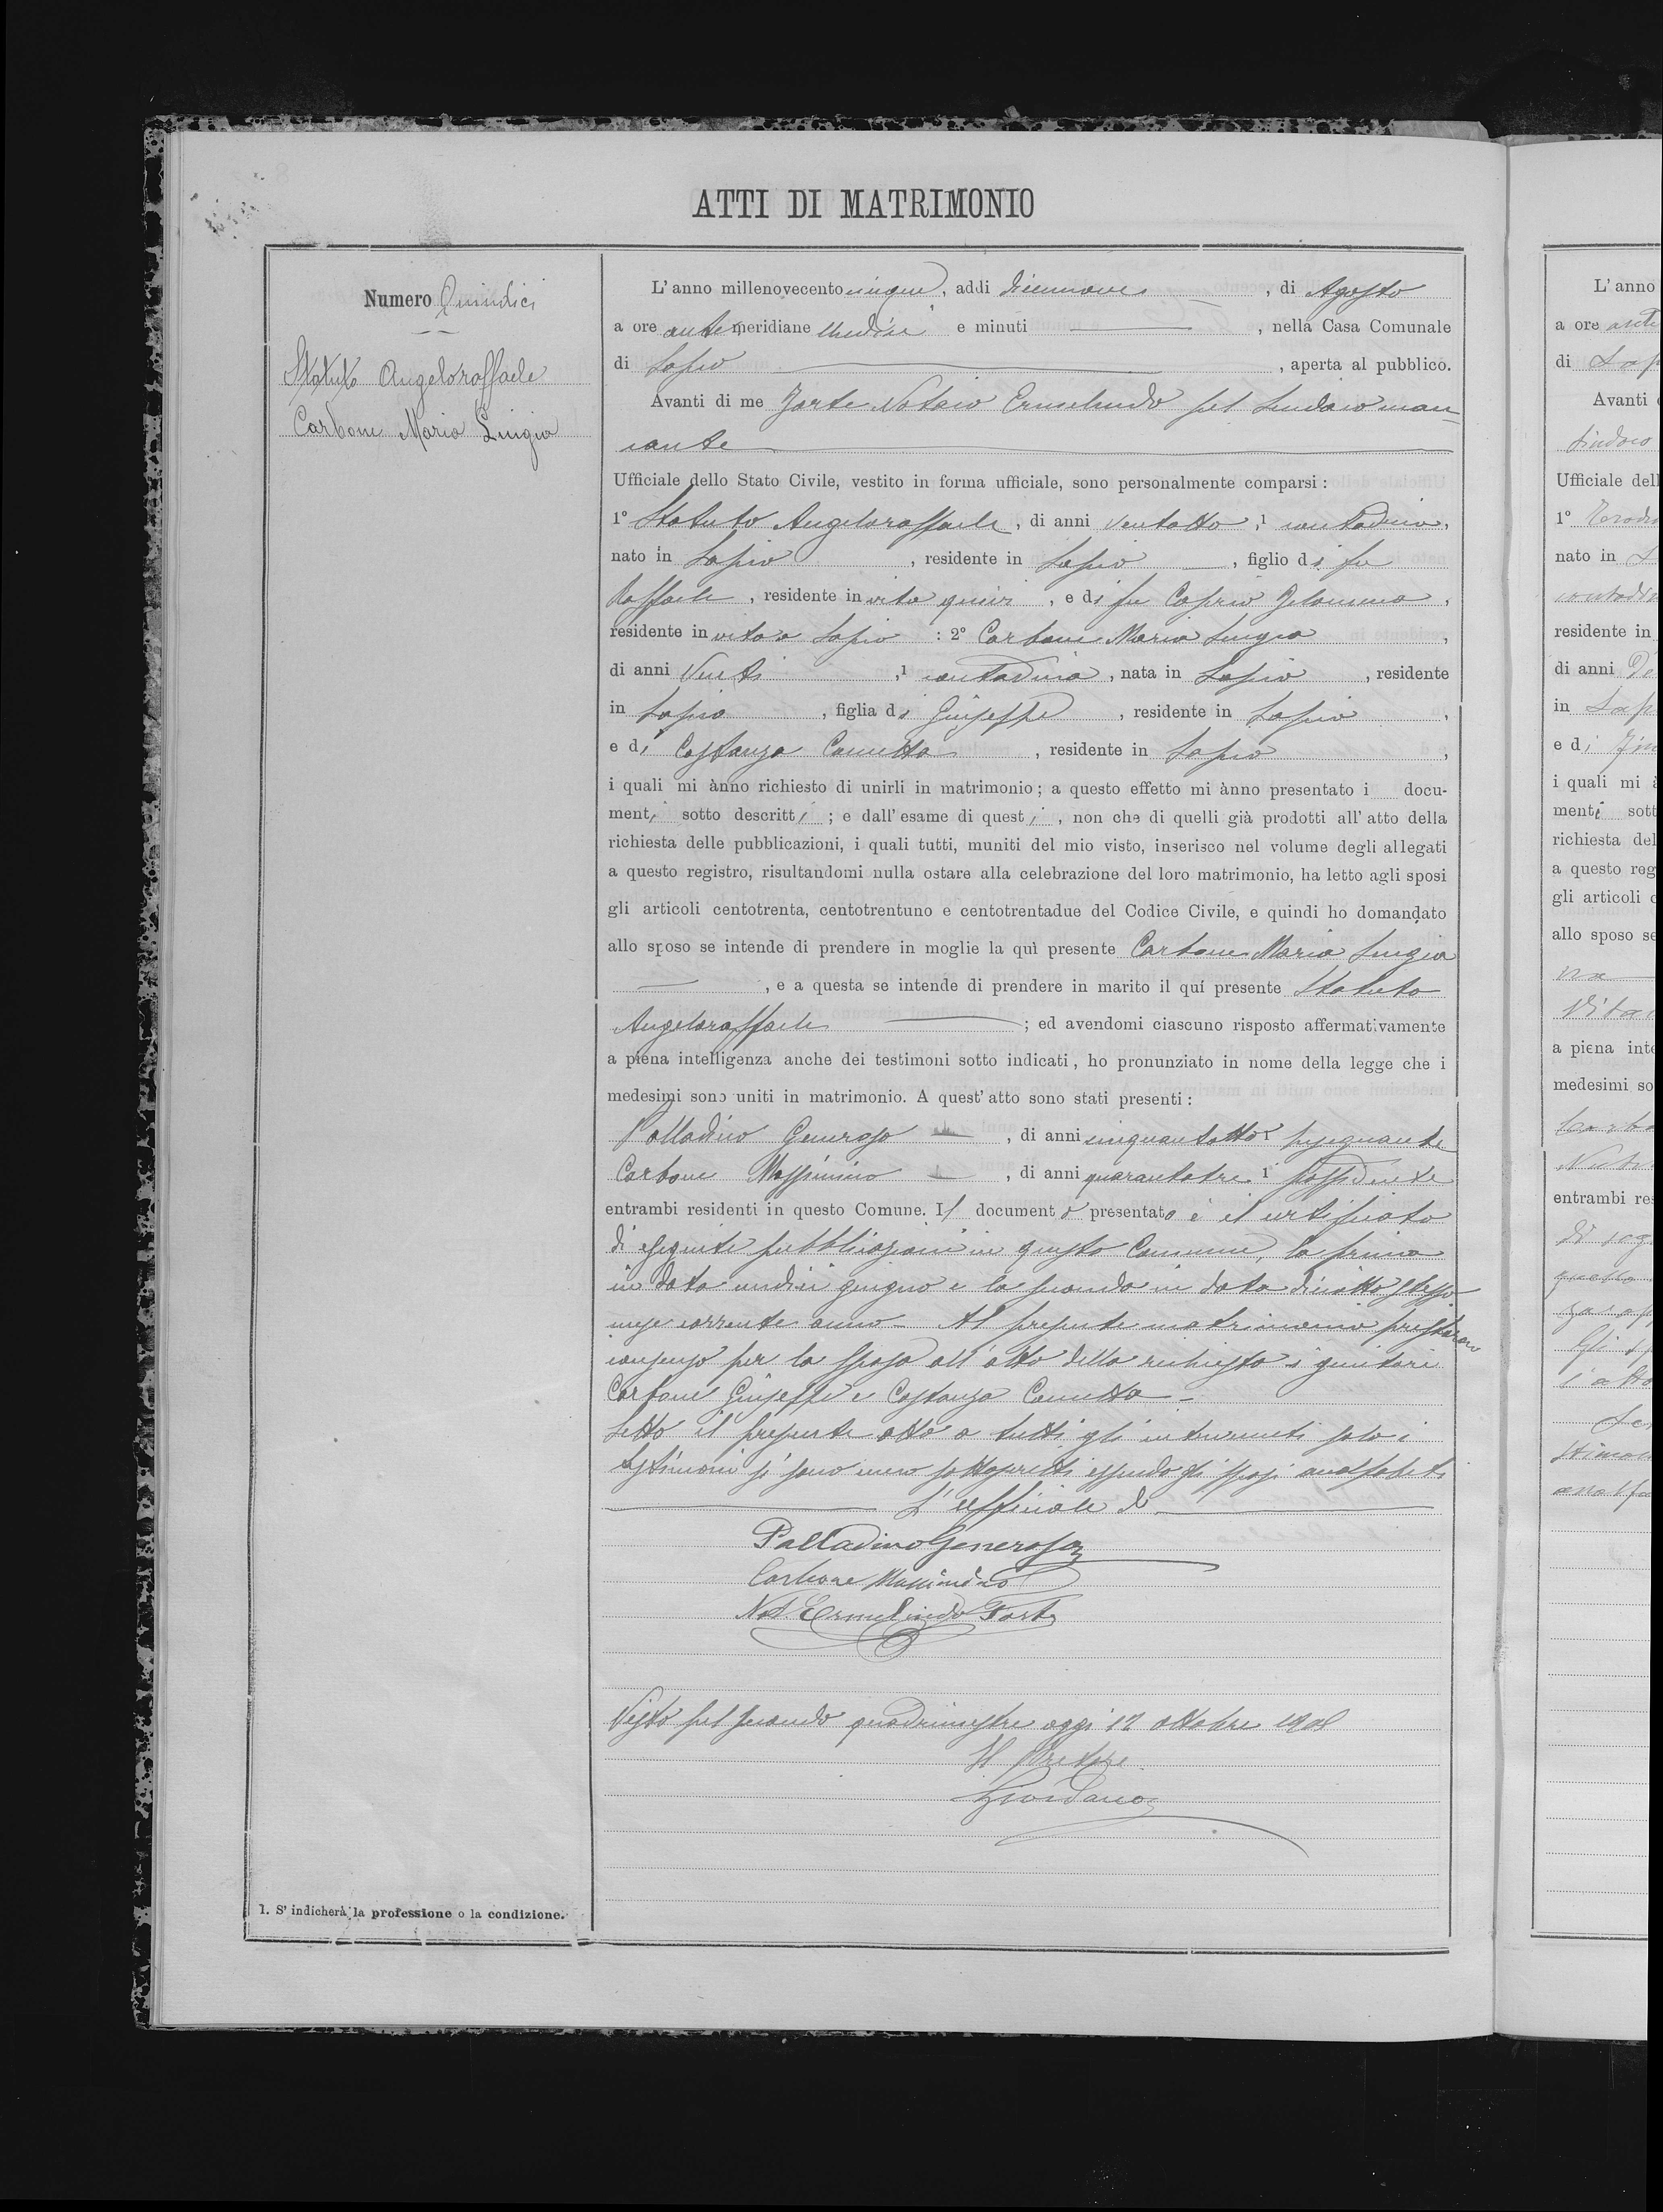 ATTI DI MATRIMONIO
Numero Quindici
Statuto Angeloraffaele
Carbone Maria Luigia
L'anno millenovecento cinque, addi diciannove, di Agosto
a ore antemeridiane undici e minuti —, nella Casa Comunale
di Lapio —, aperta al pubblico.
Avanti di me Forte Notaio Ermelindo pel Sindaco man-
cante
Ufficiale dello Stato Civile, vestito in forma ufficiale, sono personalmente comparsi:
1° Statuto Angeloraffaele, di anni ventotto, 1 contadino,
nato in Lapio, residente in Lapio —, figlio di fu
Raffaele, residente in vita quivi, e di fu Caprio Filomena,
residente in vita a Lapio : 2° Carbone Maria Luigia,
di anni Venti, 1 contadina, nata in Lapio, residente
in Lapio, figlia di Giuseppe, residente in Lapio,
e di Costanza Carmetta, residente in Lapio,
i quali mi ànno richiesto di unirli in matrimonio; a questo effetto mi ànno presentato i docu-
menti sotto descritti; e dall'esame di questi, non che di quelli già prodotti all'atto della
richiesta delle pubblicazioni, i quali tutti, muniti del mio visto, inserisco nel volume degli allegati
a questo registro, risultandomi nulla ostare alla celebrazione del loro matrimonio, ha letto agli sposi
gli articoli centotrenta, centotrentuno e centotrentadue del Codice Civile, e quindi ho domandato
allo sposo se intende di prendere in moglie la quì presente Carbone Maria Luigia
—, e a questa se intende di prendere in marito il quí presente Statuto
Angeloraffaele —; ed avendomi ciascuno risposto affermativamente
a piena intelligenza anche dei testimoni sotto indicati, ho pronunziato in nome della legge che i
medesimi sono uniti in matrimonio. A quest'atto sono stati presenti:
Palladino Generoso —, di anni cinquantotto 1 insegnante
Carbone Massimino —, di anni quarantatre 1 possidente
entrambi residenti in questo Comune. Il documento presentato è il certificato
di eseguite pubblicazioni in questo Comune, la prima
in data undici giugno e la seconda in data diciotto stesso
mese corrente anno - Al presente matrimonio prestarono
consenso per la sposa all'atto della richiesta i genitori
Carbone Giuseppe e Costanza Carmetta -
Letto il presente atto a tutti gli intervenuti solo i
testimoni si sono meco sottoscritti essendo gli sposi analfabeti
— L'Uffiziale d —
Palladino Generoso
Carbone Massimino
Not. Ermelindo Forte
Visto pel secondo quadrimestre oggi 17 ottobre 1905
Il Pretore
Giordano
1. S'indicherà la professione o la condizione.
L'anno
a ore ante
di Lap
Avanti
Sindaco
Ufficiale dell
1°
nato in L
contadin
residente in
di anni
in Lap
e di
i quali mi à
menti sott
richiesta del
a questo reg
gli articoli c
allo sposo se
na
Vita
a piena inte
medesimi so
entrambi res